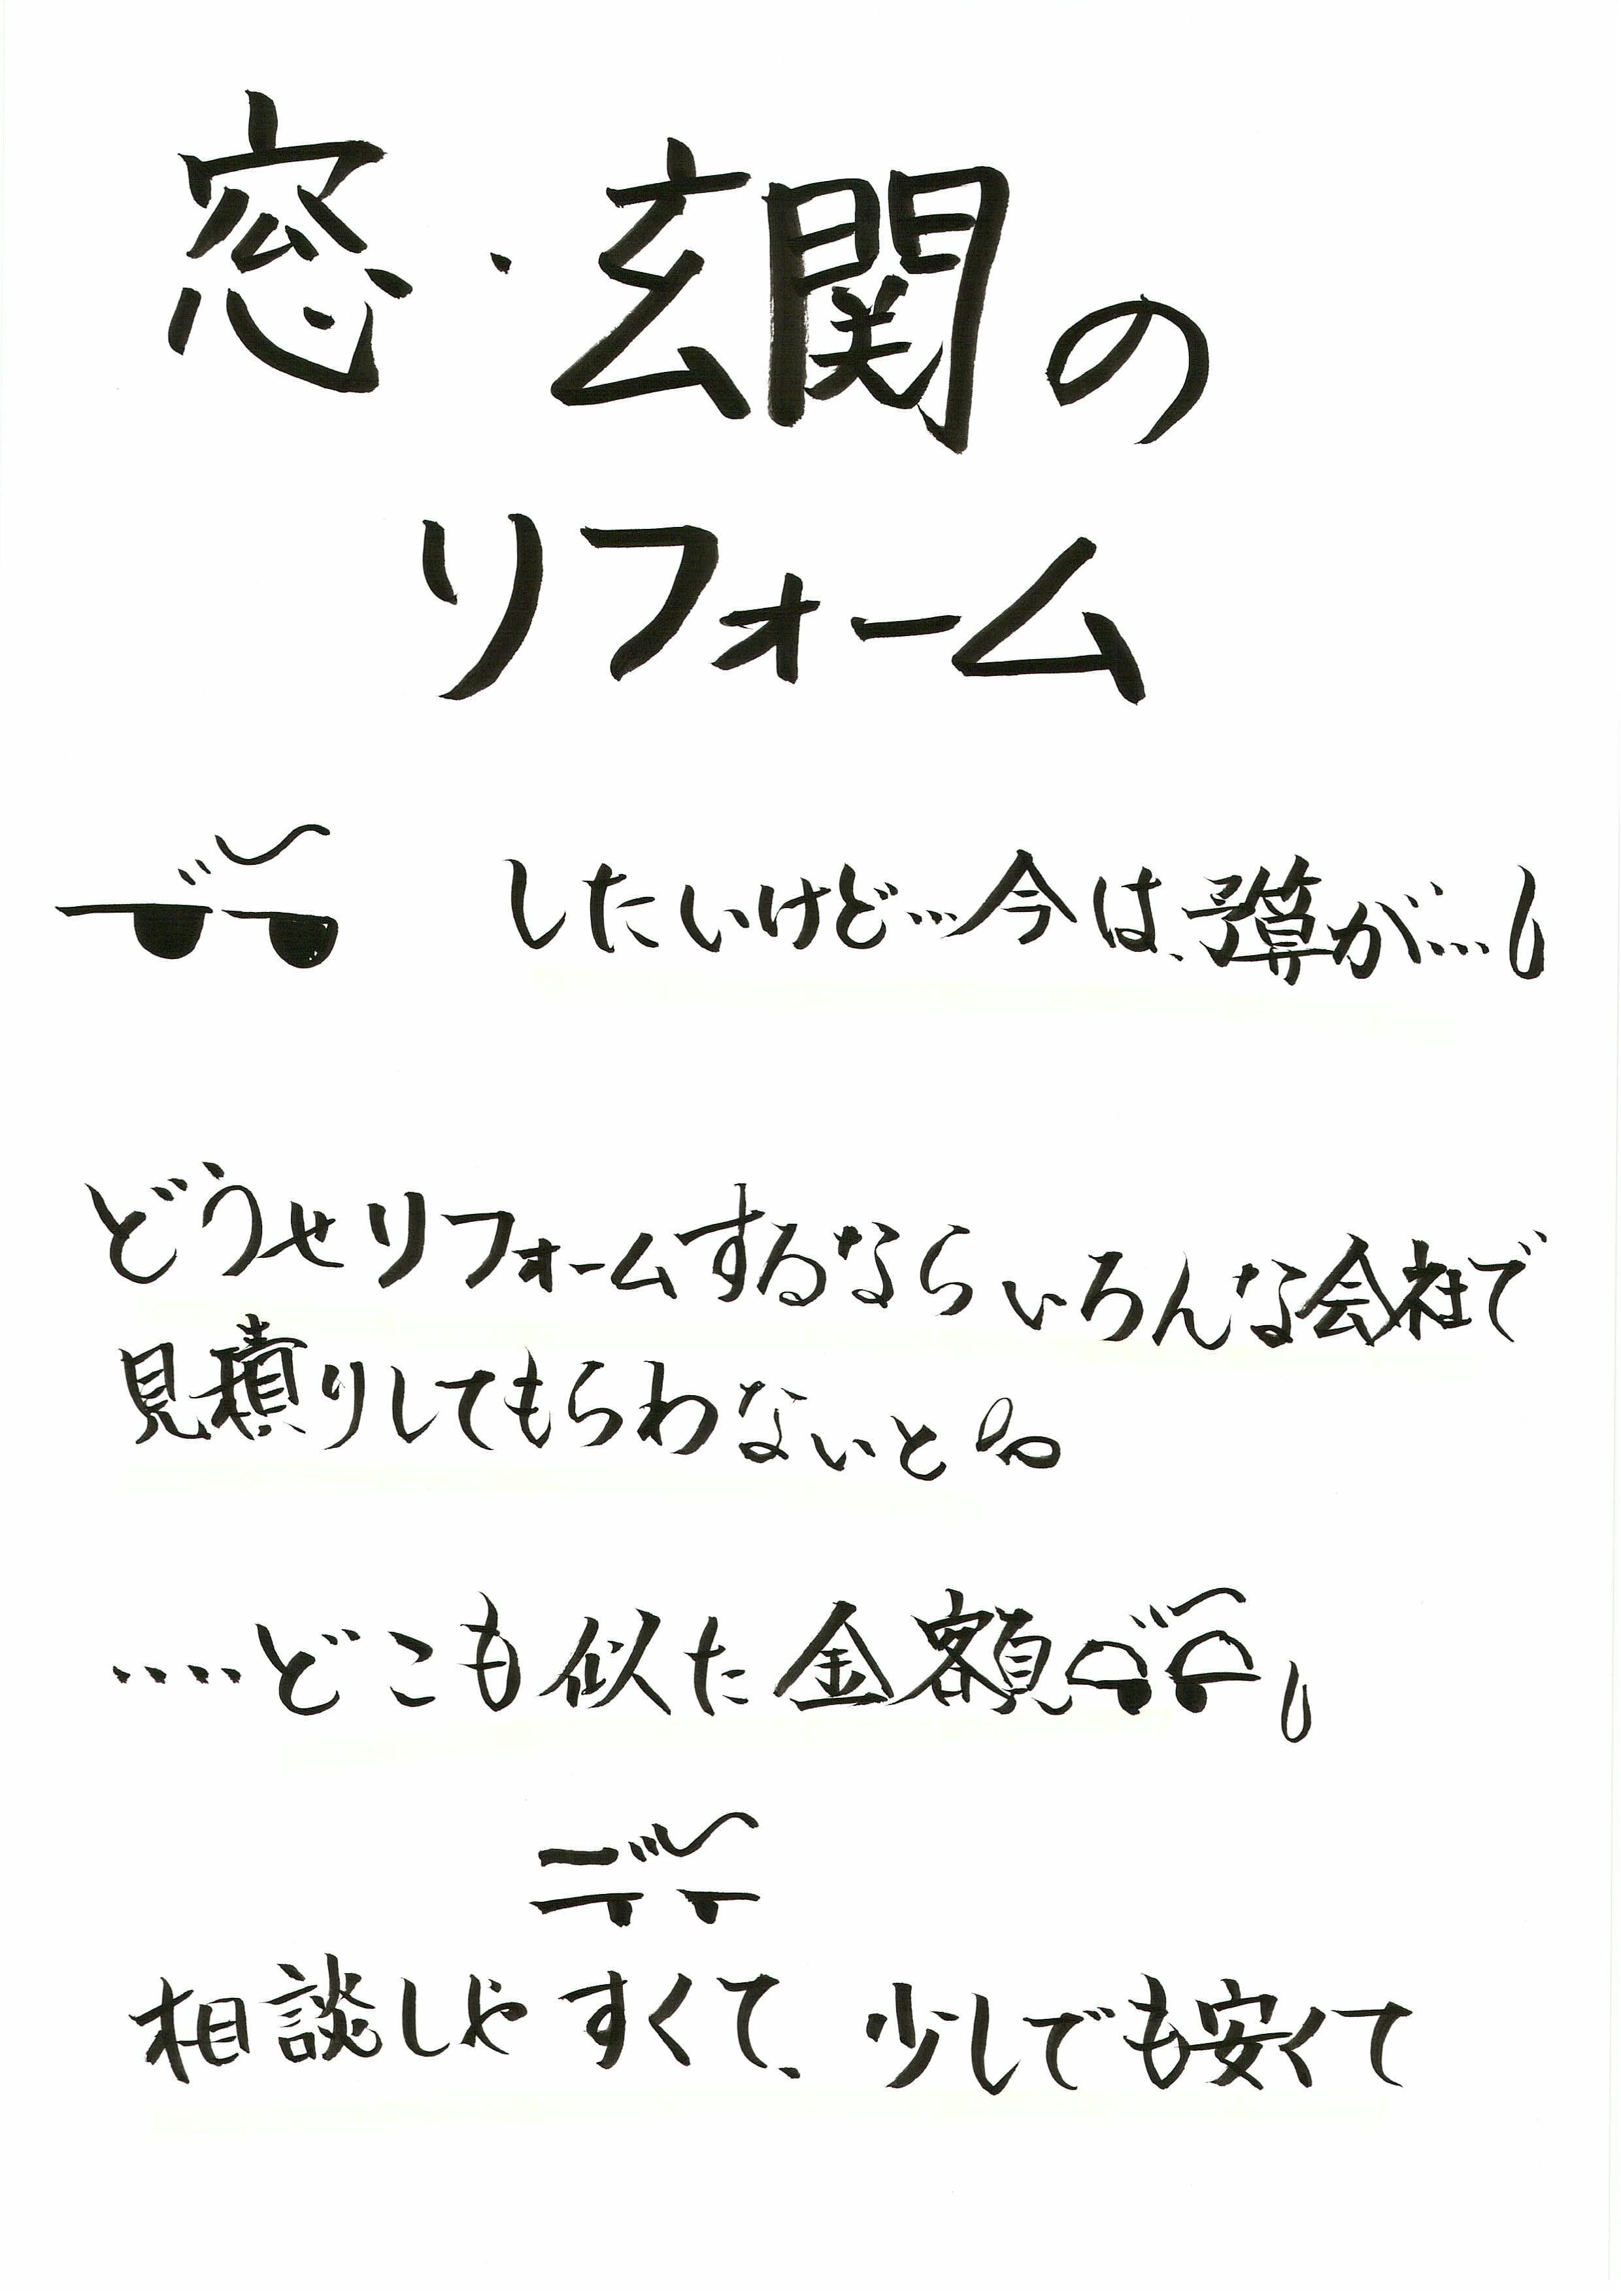 窓・玄関の
リフォーム
したいけど…今は、予算が…
どうせリフォームするならいろんな会社で
見積りしてもらわないと
‥‥どこも似た金額
相談しやすくて、少しでも安くて